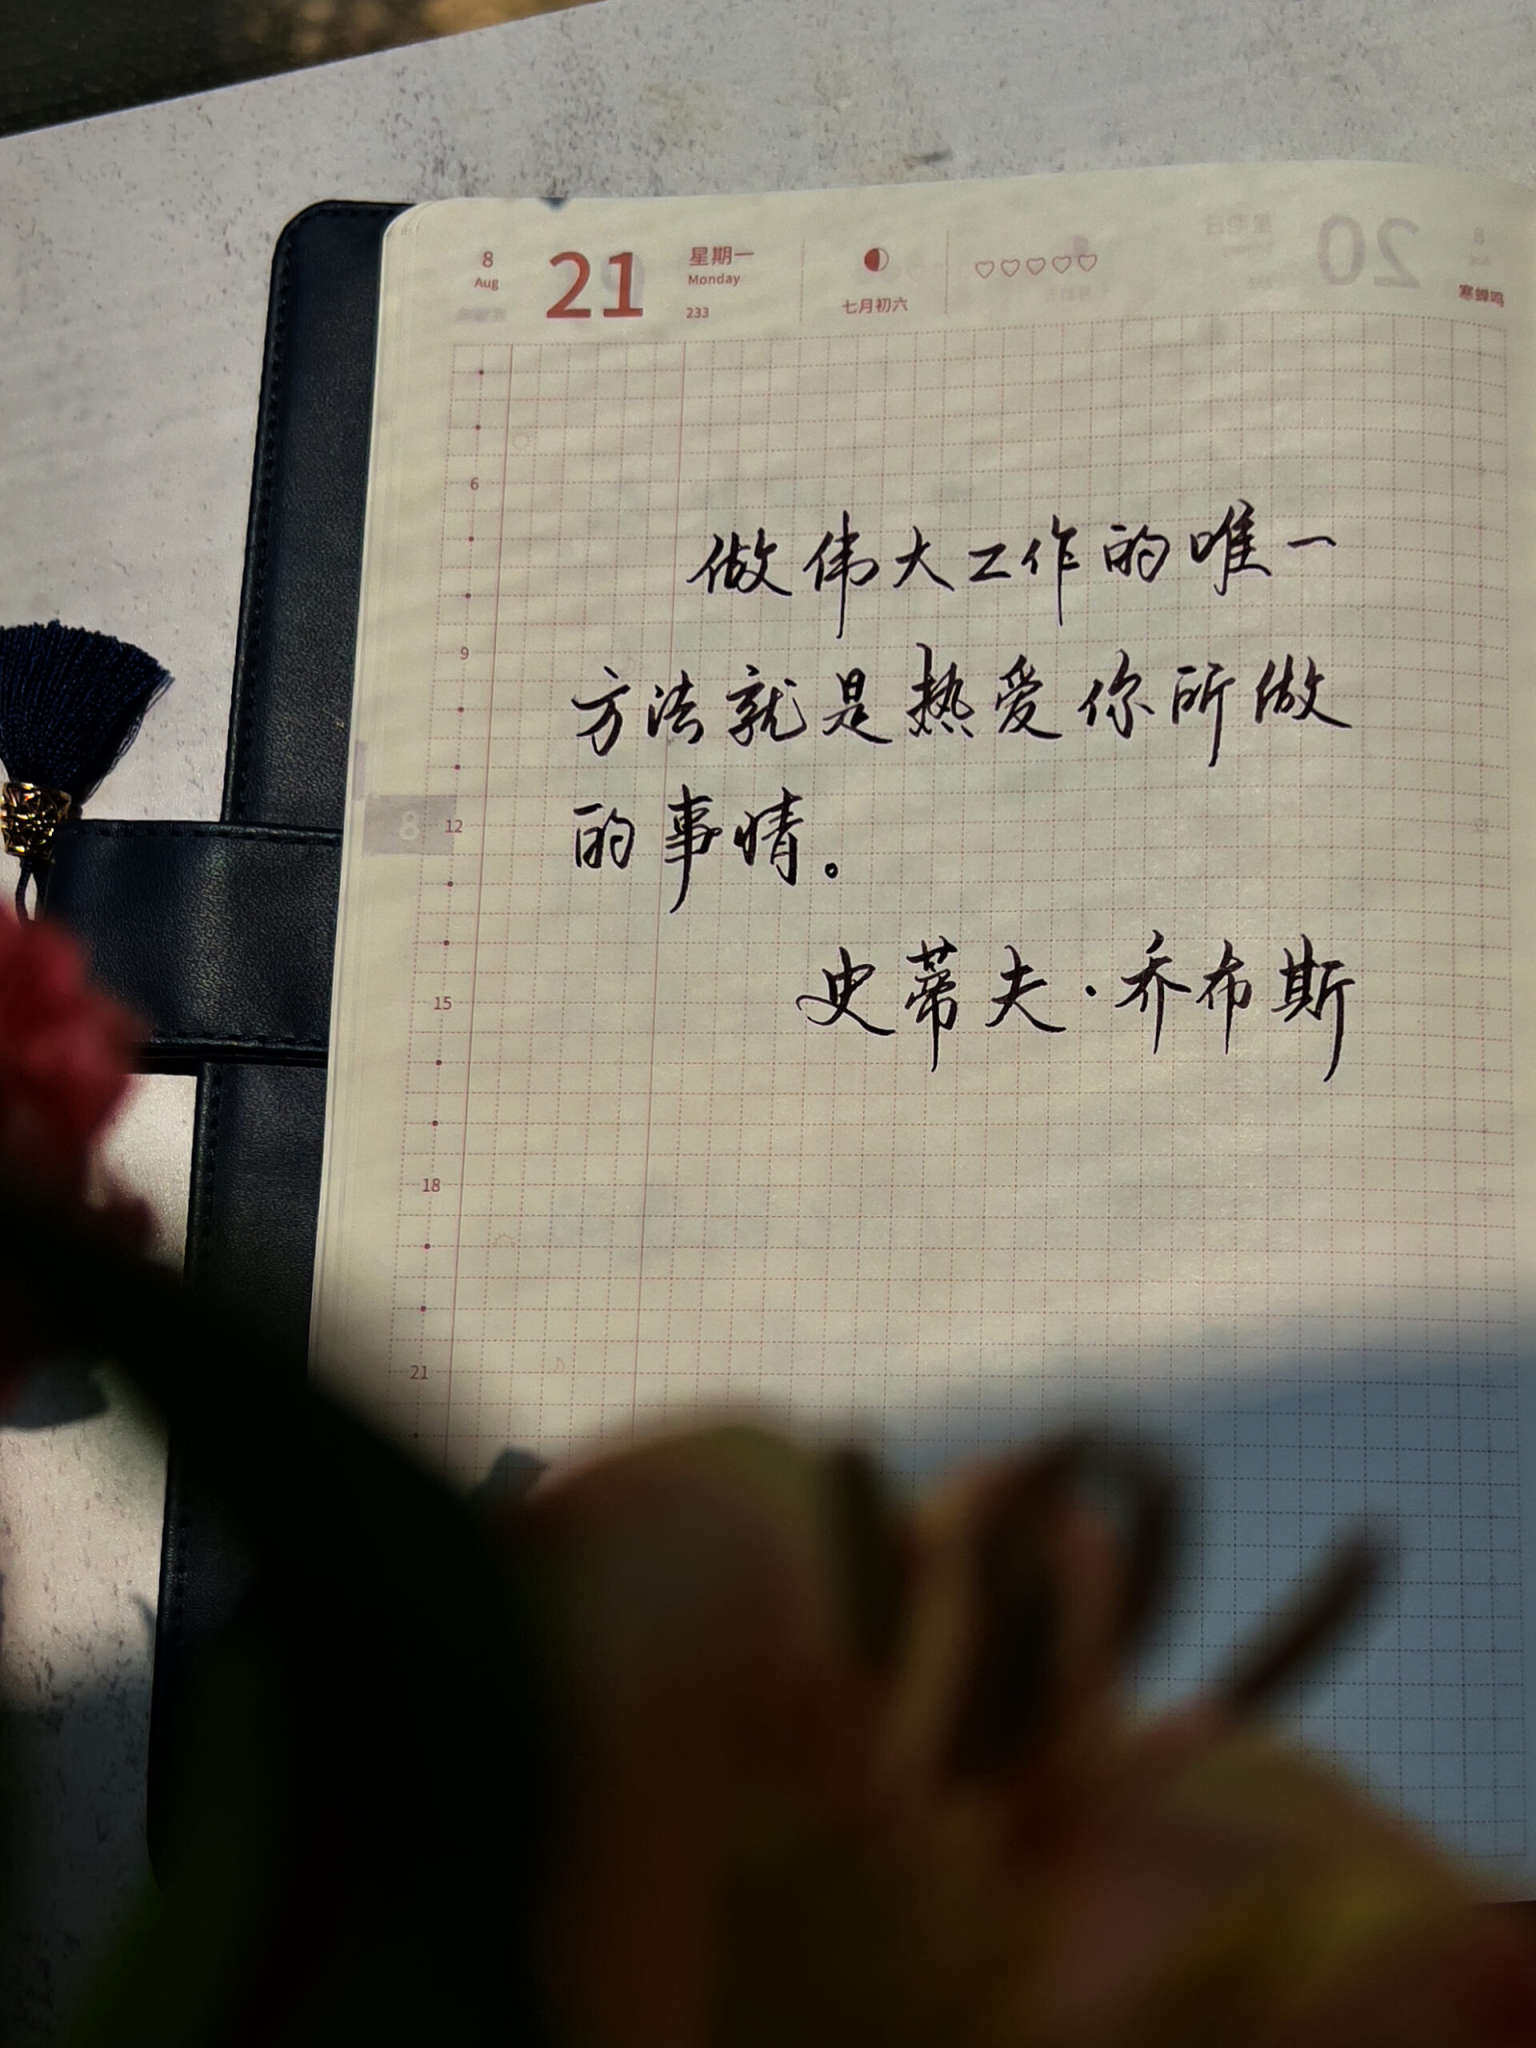 8 21 星期一
Aug Monday
233 七月初六
寒蝉鸣
6
做伟大工作的唯一
9
方法就是热爱你所做
8 12
的事情。
15
史蒂夫·乔布斯
18
21